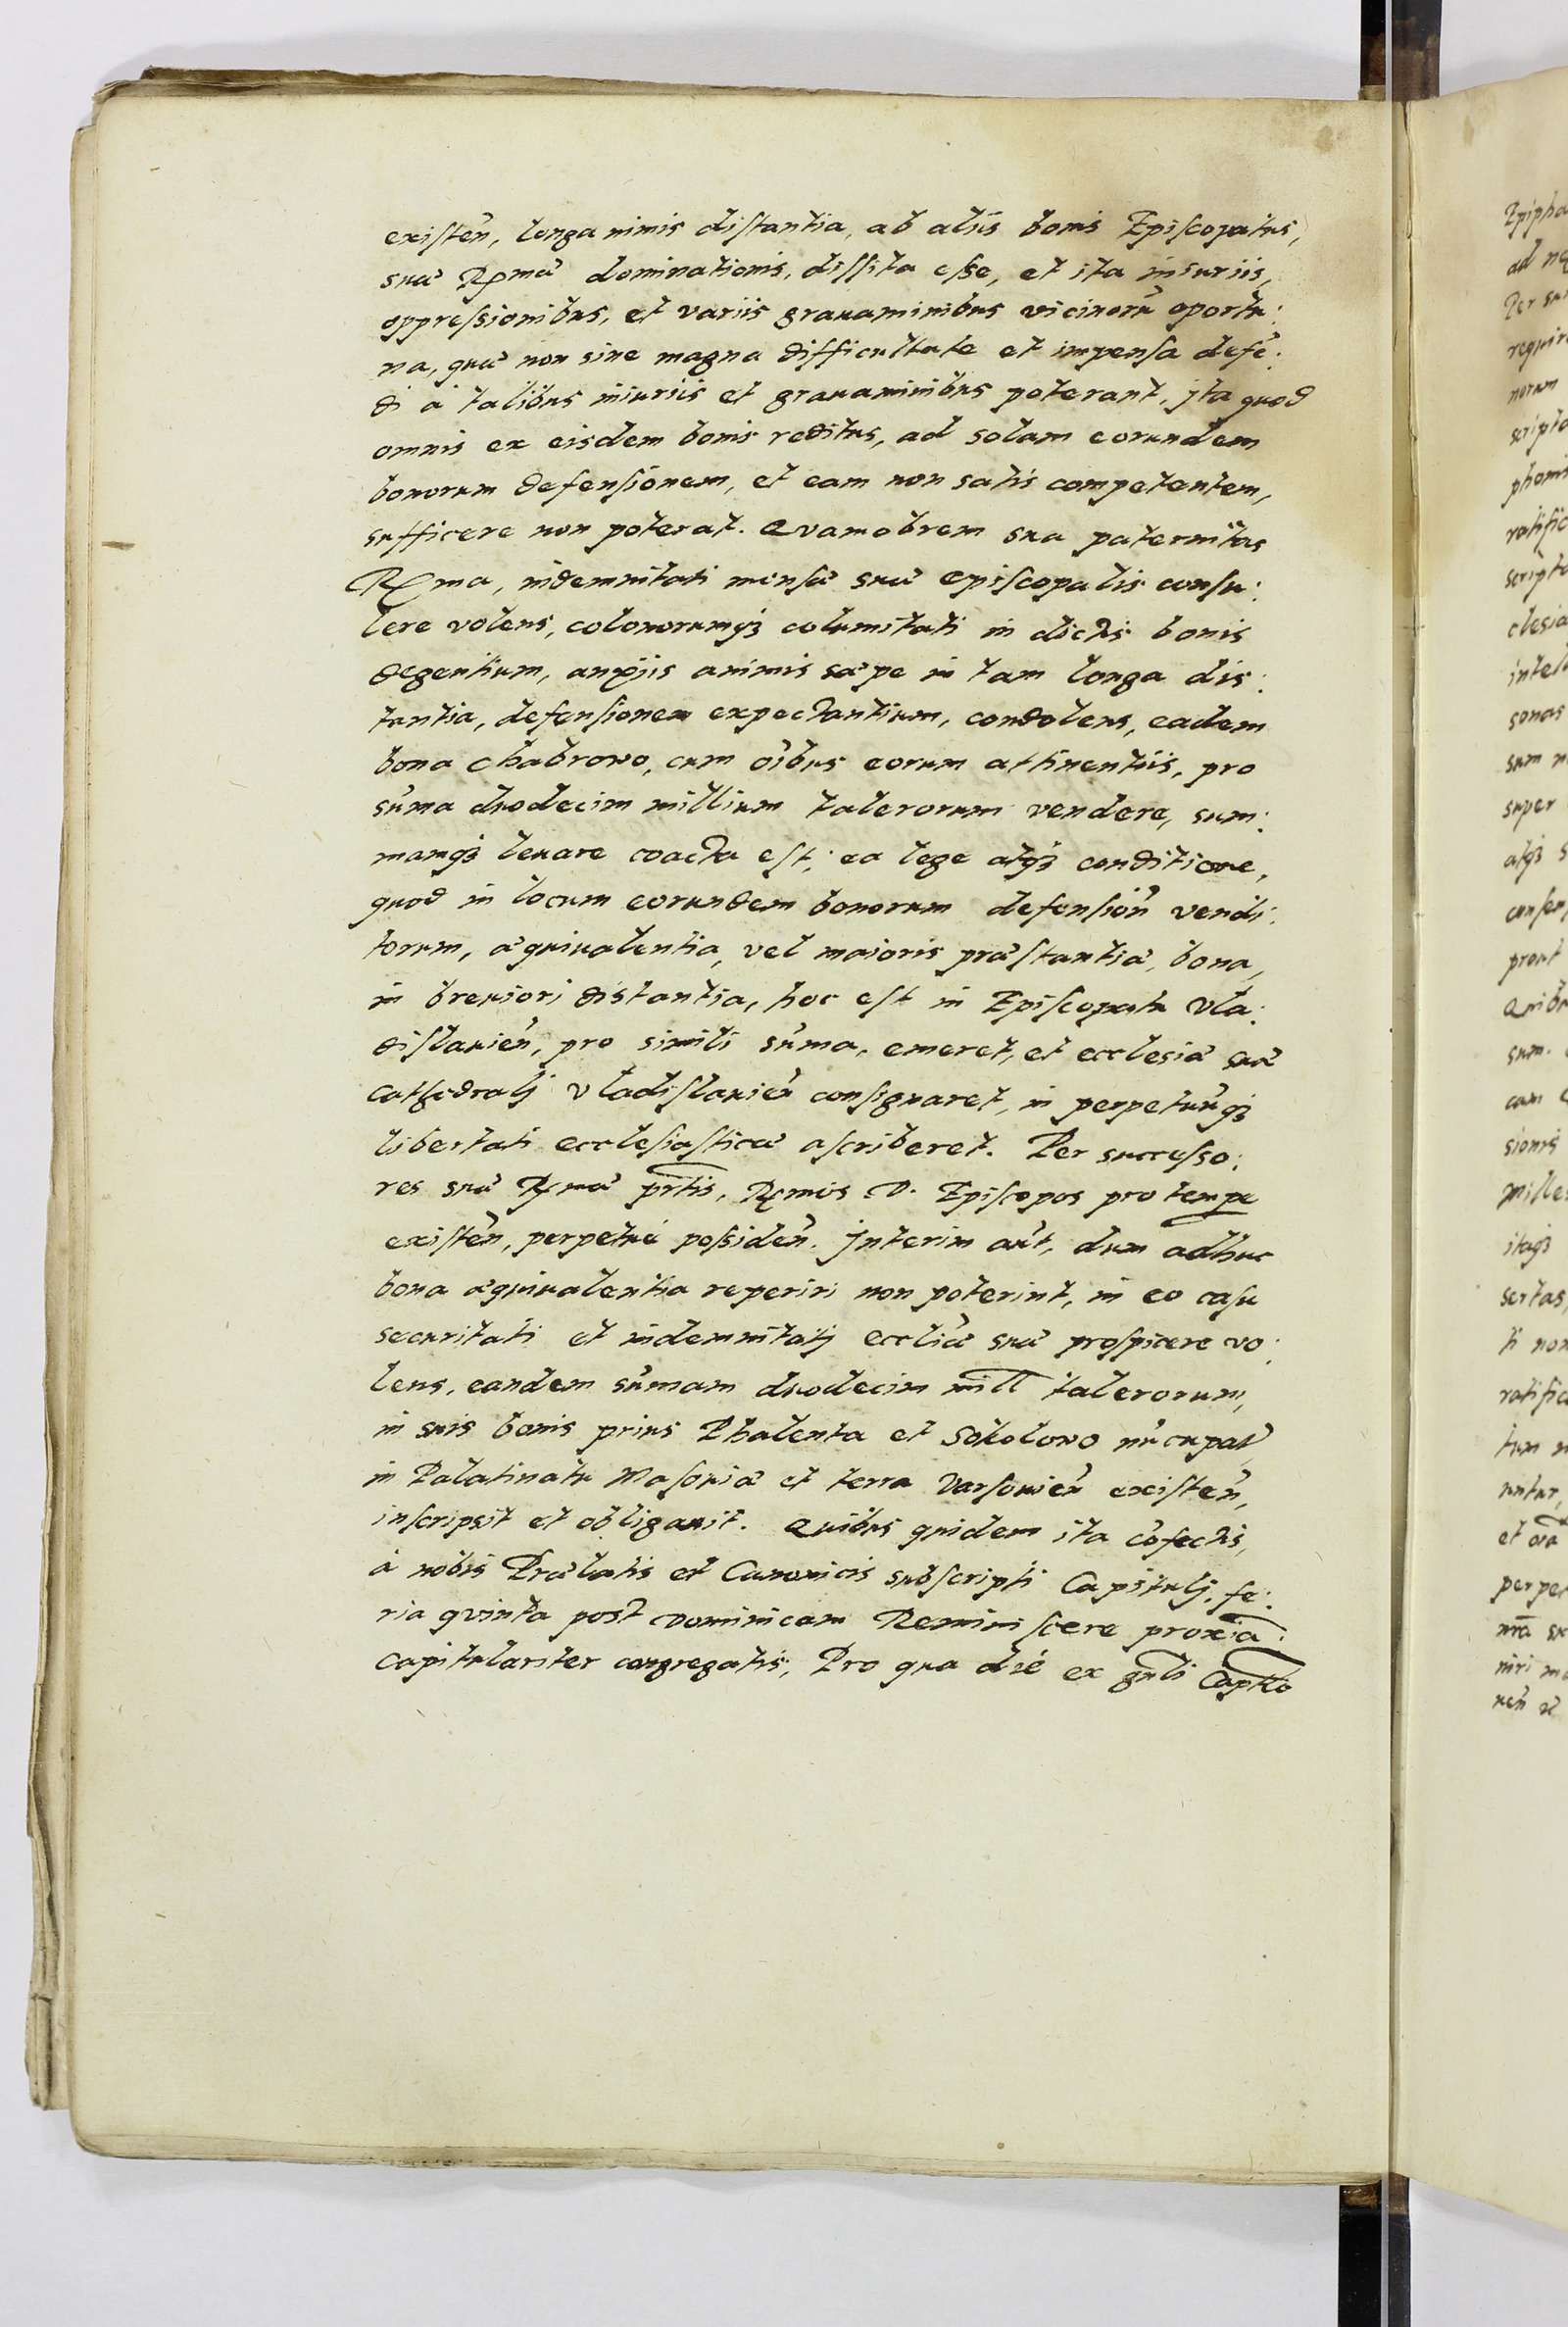 existeñ, longa nimis distantia, ab aliis bonis Episcopatus,
suæ Rṃæ dominationis, dissita esse, et ita iniuriis,
oppressionibus, et variis grauaminibus vicinorũ oportu:
na, quæ non sine magna difficultate et impensa defẽ:
di à talibus iniuriis et grauaminibus poterant, jta quod
omnis ex eisdem bonis reditus, ad solam eorundem
bonorum defensionem, et eam non satis competentem,
sufficere non poterat. Quamobrem sua paternitas
Rma, indemnitati mensæ suæ episcopalis consu:
lere volens, colonorumqȝ calumitati in dictis bonis
degentium, anxiis animis sæpe in tam longa dis:
tantia, defensionem expectantium, condolens, eadem
bona Chabrowo, cum oĩbus eorum attinentiis, pro
sũma duodecim millium talerorum vendere, sum:
mamqȝ leuare coacta est; ea lege atqȝ conditione,
quod in locum eorundem bonorum defensioñ vendi:
torum, æquiualentia, vel maioris præstantiæ, bona,
in breuiori distantia, hoc est in Episcopatu Vla:
dislauieñ, pro simili sũma, emeret, et ecclesiæ suæ
cathedralj Vladislauieñ consignaret, in perpetuũqȝ
libertati ecclesiasticæ ascriberet. Per successo:
res suæ Rmæ prtis, Rmos D. Episcopos pro tempe
existeñ, perpetuè possideñ. Jnterim aũt, dum adhuc
bona æquiualentia reperiri non poterint, in eo casu
securitati et indemnitatj eccliæ suæ prospicere vo:
lens, eandem sũmam duodecim mill talerorum,
in suis bonis prius Phalenta et Sokolowo nũcupat,
in Palatinatu Masouiæ et terra Varsouieñ existeñ,
inscripsit et obligauit. Quibus quidem ita cõfectis,
à nobis Prælatis et Canonicis subscripti Capitulj, fe:
ria quinta post Dominicam Reminiscere proxia
capitulariter congregatis, Pro qua die ex gnli Captlo
Epipha
ad
Per su
requir
norum
scripto
phanis
ratific
scripto
clesia
intel
sonas
sum n
super
atqȝ s
consen
prout
Quibu
sum.
cum
sionis
mille
itaqȝ
sertas,
ti non
ratifica
tum
untur,
et oia
perpet
nra su
niri